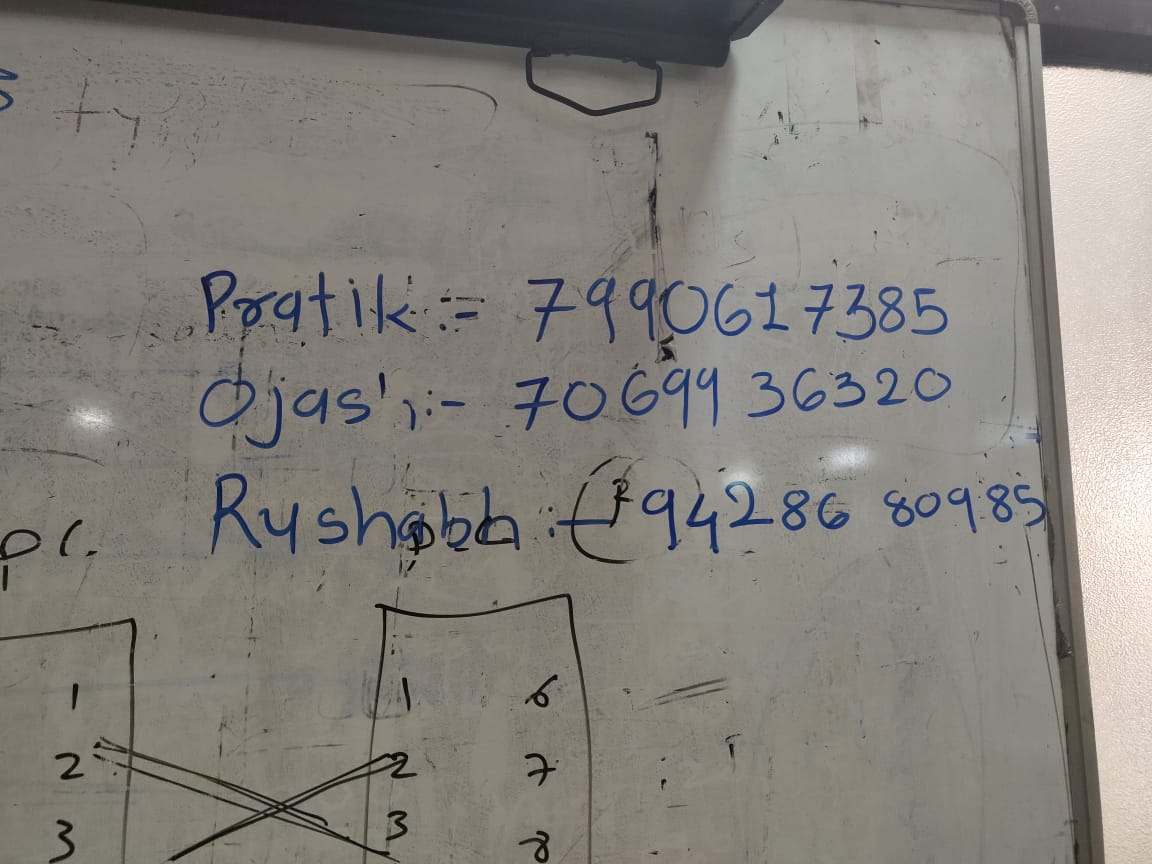 Pratik :- 7990617385
Ojas' :- 70699 36320
Ryshabh :- 94286 80985
1 1 6
2 2 7
3 3 8